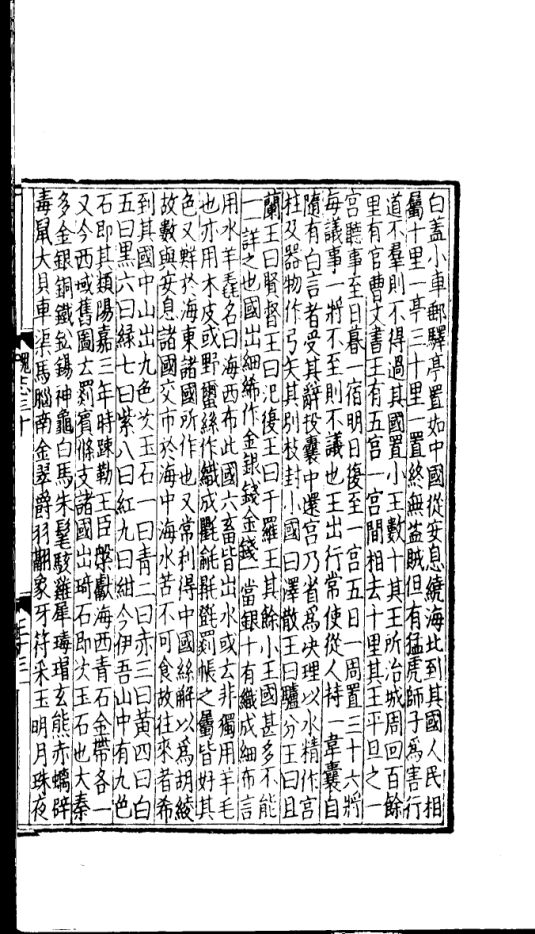 白盖小車郵驛亭置如中國從安息繞海北到其國人民相
屬十里一亭三十里一置終無盗賊但有猛虎師子為害行
道不羣則不得過其國置小王數十其王所治城周回百餘
里有官曹文書王有五宫一宫間相去十里其王平旦之一
宫聽事至日暮一宿明日復至一宫五日一周置三十六將
每議事一將不至則不議也王出行常使從人持一韋囊自
隨有白言者受其辭投囊中還宫乃省為决理以水精作宫
柱及器物作弓矢其别枝封小國曰澤散王曰驢分王曰且
蘭王曰賢督王曰汜復王曰于羅王其餘小王國甚多不能
一一詳之也國出細絺作金銀錢金錢一當銀十有織成細布言
用水羊毳名曰海西布此國六畜皆出水或云非獨用羊毛
也亦用木皮或野蠶絲作織成氍毹毾㲪罽帳之屬皆好其
色又鮮於海東諸國所作也又常利得中國絲解以為胡綾
故數與安息諸國交市於海中海水苦不可食故往來者希
到其國中山出九色次玉石一曰青二曰赤三曰黄四曰白
五曰黑六曰緑七曰紫八曰紅九曰紺今伊吾山中有九色
石即其類陽嘉三年時踈勒王臣槃獻海西青石金帶各一
又今西域舊圖云罽賓條支諸國出琦石即次玉石也大秦
多金銀銅鐵鈆錫神龜白馬朱髦駭雞犀瑇瑁玄熊赤螭辟
毒鼠大貝車渠馬腦南金翠爵羽翮象牙符采玉明月珠夜